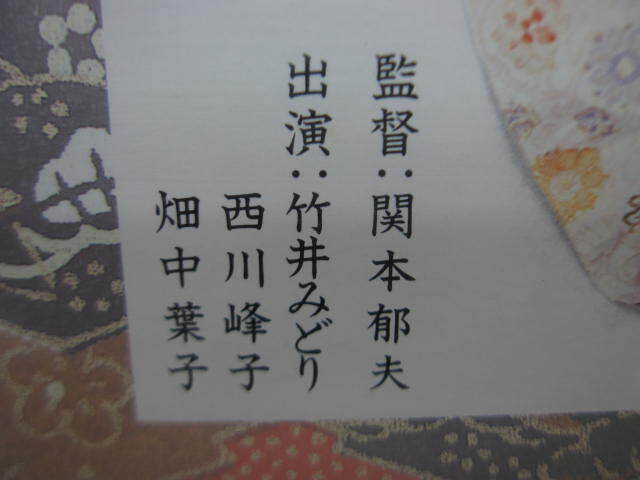 監督：関本郁夫
出演：竹井みどり
西川峰子
畑中葉子